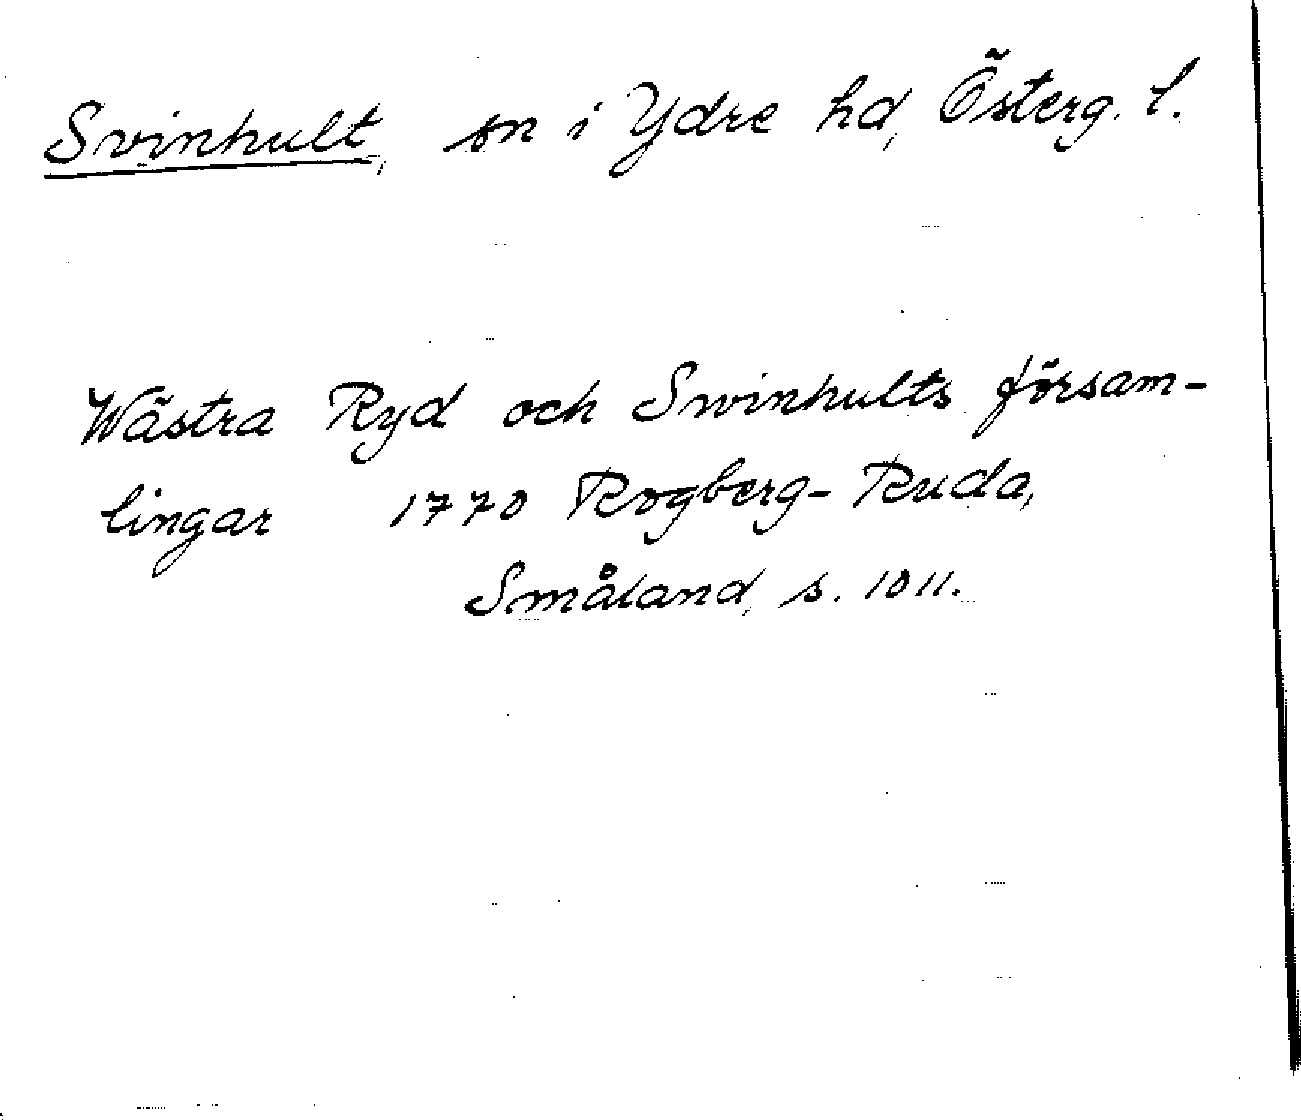 Svinhult, sn i Ydre hd, Österg. l.
Wästra Ryd och Swinhults försam-
lingar 1770 Rogberg-Ruda,
Småland, s. 1011.